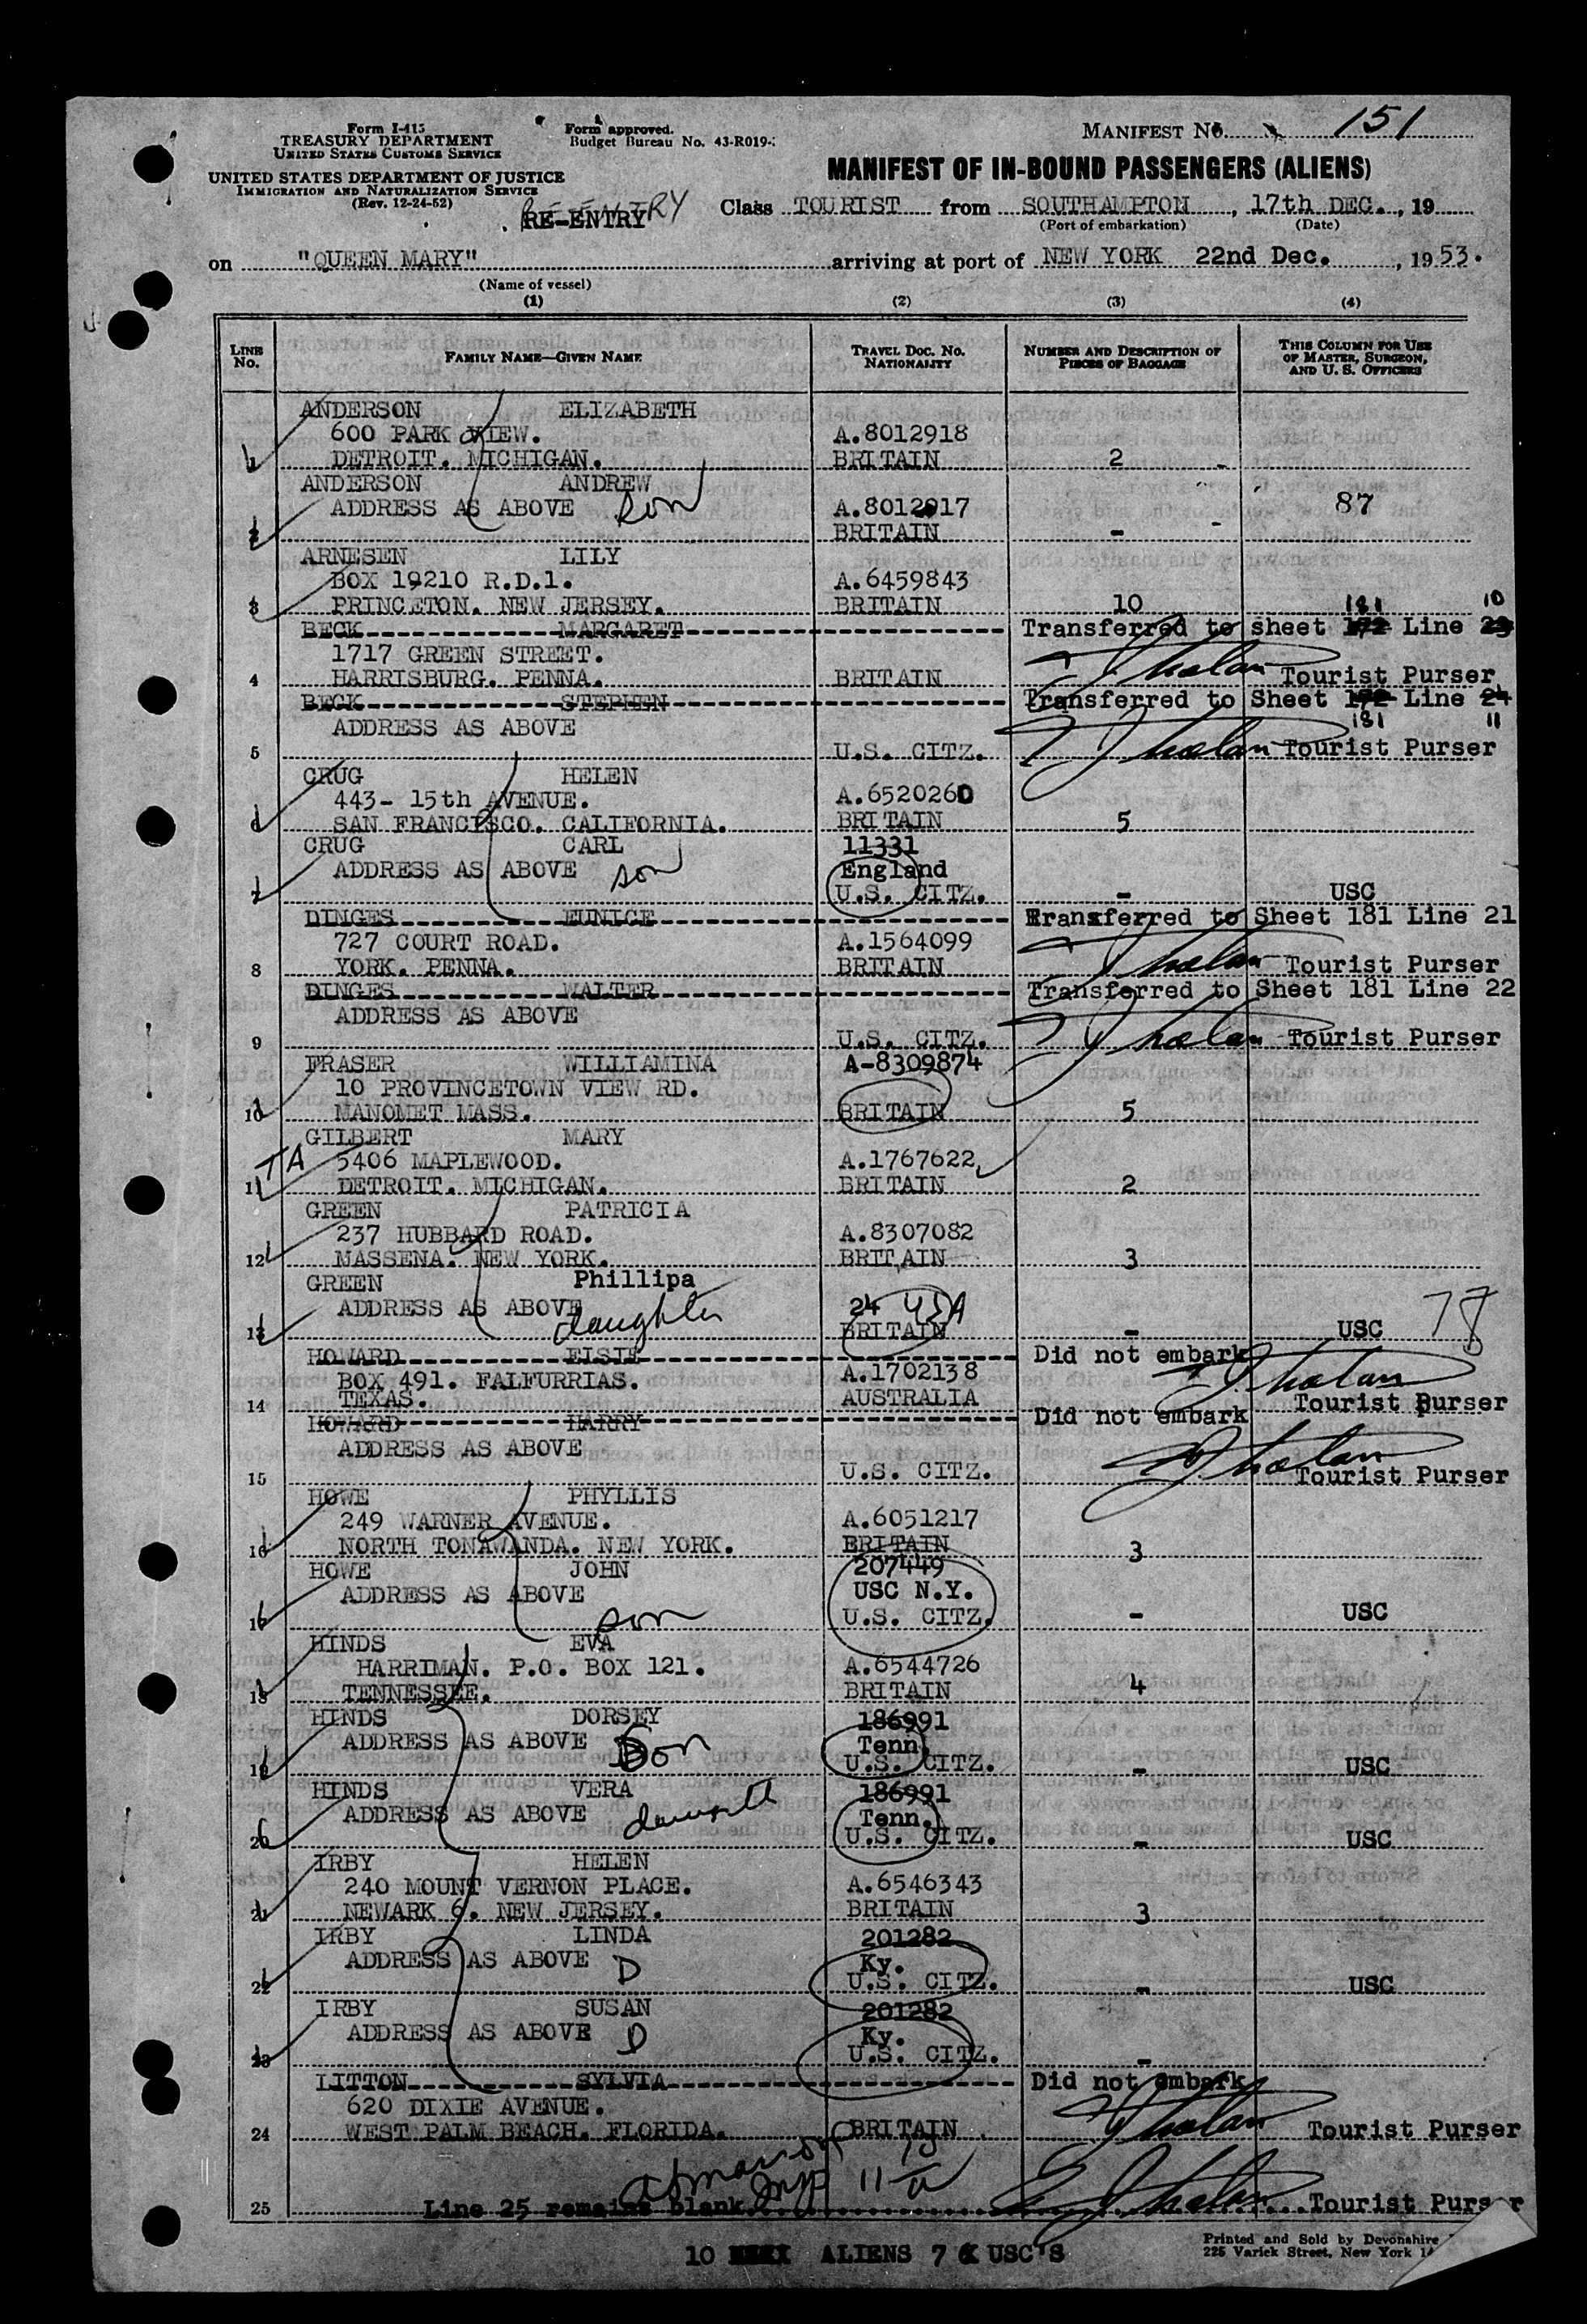 Form I-415
TREASURY DEPARTMENT
UNITED STATES CUSTOMS SERVICE
UNITED STATES DEPARTMENT OF JUSTICE
IMMIGRATION AND NATURALIZATION SERVICE
(Rev. 12-24-52)
Form approved.
Budget Bureau No. 43-R019-
MANIFEST No. 151
MANIFEST OF IN-BOUND PASSENGERS (ALIENS)
RE-ENTRY RE-ENTRY
Class TOURIST from SOUTHAMPTON, 17th DEC., 19
(Port of embarkation) (Date)
on "QUEEN MARY" arriving at port of NEW YORK 22nd Dec., 1953.
(Name of vessel)
(1) (2) (3) (4)
LINE No. FAMILY NAME—GIVEN NAME TRAVEL DOC. NO. NATIONALITY NUMBER AND DESCRIPTION OF PIECES OF BAGGAGE THIS COLUMN FOR USE OF MASTER, SURGEON, AND U. S. OFFICERS
ANDERSON ELIZABETH
600 PARK VIEW. A.8012918
1 DETROIT. MICHIGAN. BRITAIN 2 -
ANDERSON ANDREW
ADDRESS AS ABOVE son A.8012917 87
2 BRITAIN - -
ARNESEN LILY
BOX 19210 R.D.1. A.6459843
3 PRINCETON. NEW JERSEY. BRITAIN 10 181 10
BECK MARGARET Transferred to sheet 172 Line 23
1717 GREEN STREET.
4 HARRISBURG. PENNA. BRITAIN Tourist Purser
BECK STEPHEN Transferred to Sheet 172 Line 24
ADDRESS AS ABOVE 181 11
5 U.S. CITZ. Tourist Purser
CRUG HELEN
443- 15th AVENUE. A.6520260
6 SAN FRANCISCO. CALIFORNIA. BRITAIN 5
CRUG CARL 11331
ADDRESS AS ABOVE son England
7 U.S. CITZ. - USC
DINGES EUNICE Transferred to Sheet 181 Line 21
727 COURT ROAD. A.1564099
8 YORK. PENNA. BRITAIN Tourist Purser
DINGES WALTER Transferred to Sheet 181 Line 22
ADDRESS AS ABOVE
9 U.S. CITZ. Tourist Purser
FRASER WILLIAMINA A-8309874
10 PROVINCETOWN VIEW RD.
10 MANOMET MASS. BRITAIN 5
GILBERT MARY
TA 5406 MAPLEWOOD. A.1767622
11 DETROIT. MICHIGAN. BRITAIN 2
GREEN PATRICIA
237 HUBBARD ROAD. A.8307082
12 MASSENA. NEW YORK. BRITAIN 3
GREEN Phillipa
ADDRESS AS ABOVE daughter 24 USA
13 BRITAIN - USC 78
HOWARD ELSIE Did not embark
BOX 491. FALFURRIAS. A.1702138
14 TEXAS. AUSTRALIA Tourist Purser
HOWARD HARRY Did not embark
ADDRESS AS ABOVE
15 U.S. CITZ. Tourist Purser
HOWE PHYLLIS
249 WARNER AVENUE. A.6051217
16 NORTH TONAWANDA. NEW YORK. BRITAIN 3
HOWE JOHN 207449
ADDRESS AS ABOVE USC N.Y.
son U.S. CITZ. - USC
HINDS EVA
HARRIMAN. P.O. BOX 121. A.6544726
18 TENNESSEE. BRITAIN 4
HINDS DORSEY 186991
ADDRESS AS ABOVE Son Tenn.
19 U.S. CITZ. - USC
HINDS VERA 186991
ADDRESS AS ABOVE Tenn.
20 U.S. CITZ. - USC
IRBY HELEN
240 MOUNT VERNON PLACE. A.6546343
21 NEWARK 6. NEW JERSEY. BRITAIN 3
IRBY LINDA 201282
ADDRESS AS ABOVE D Ky.
22 U.S. CITZ. - USC
IRBY SUSAN 201282
ADDRESS AS ABOVE D Ky.
23 U.S. CITZ. -
LITTON SYLVIA Did not embark
620 DIXIE AVENUE.
24 WEST PALM BEACH. FLORIDA. BRITAIN Tourist Purser
25 Line 25 remains blank Tourist Purser
10 ALIENS 7 USC'S
Printed and Sold by Devonshire
225 Varick Street, New York 14